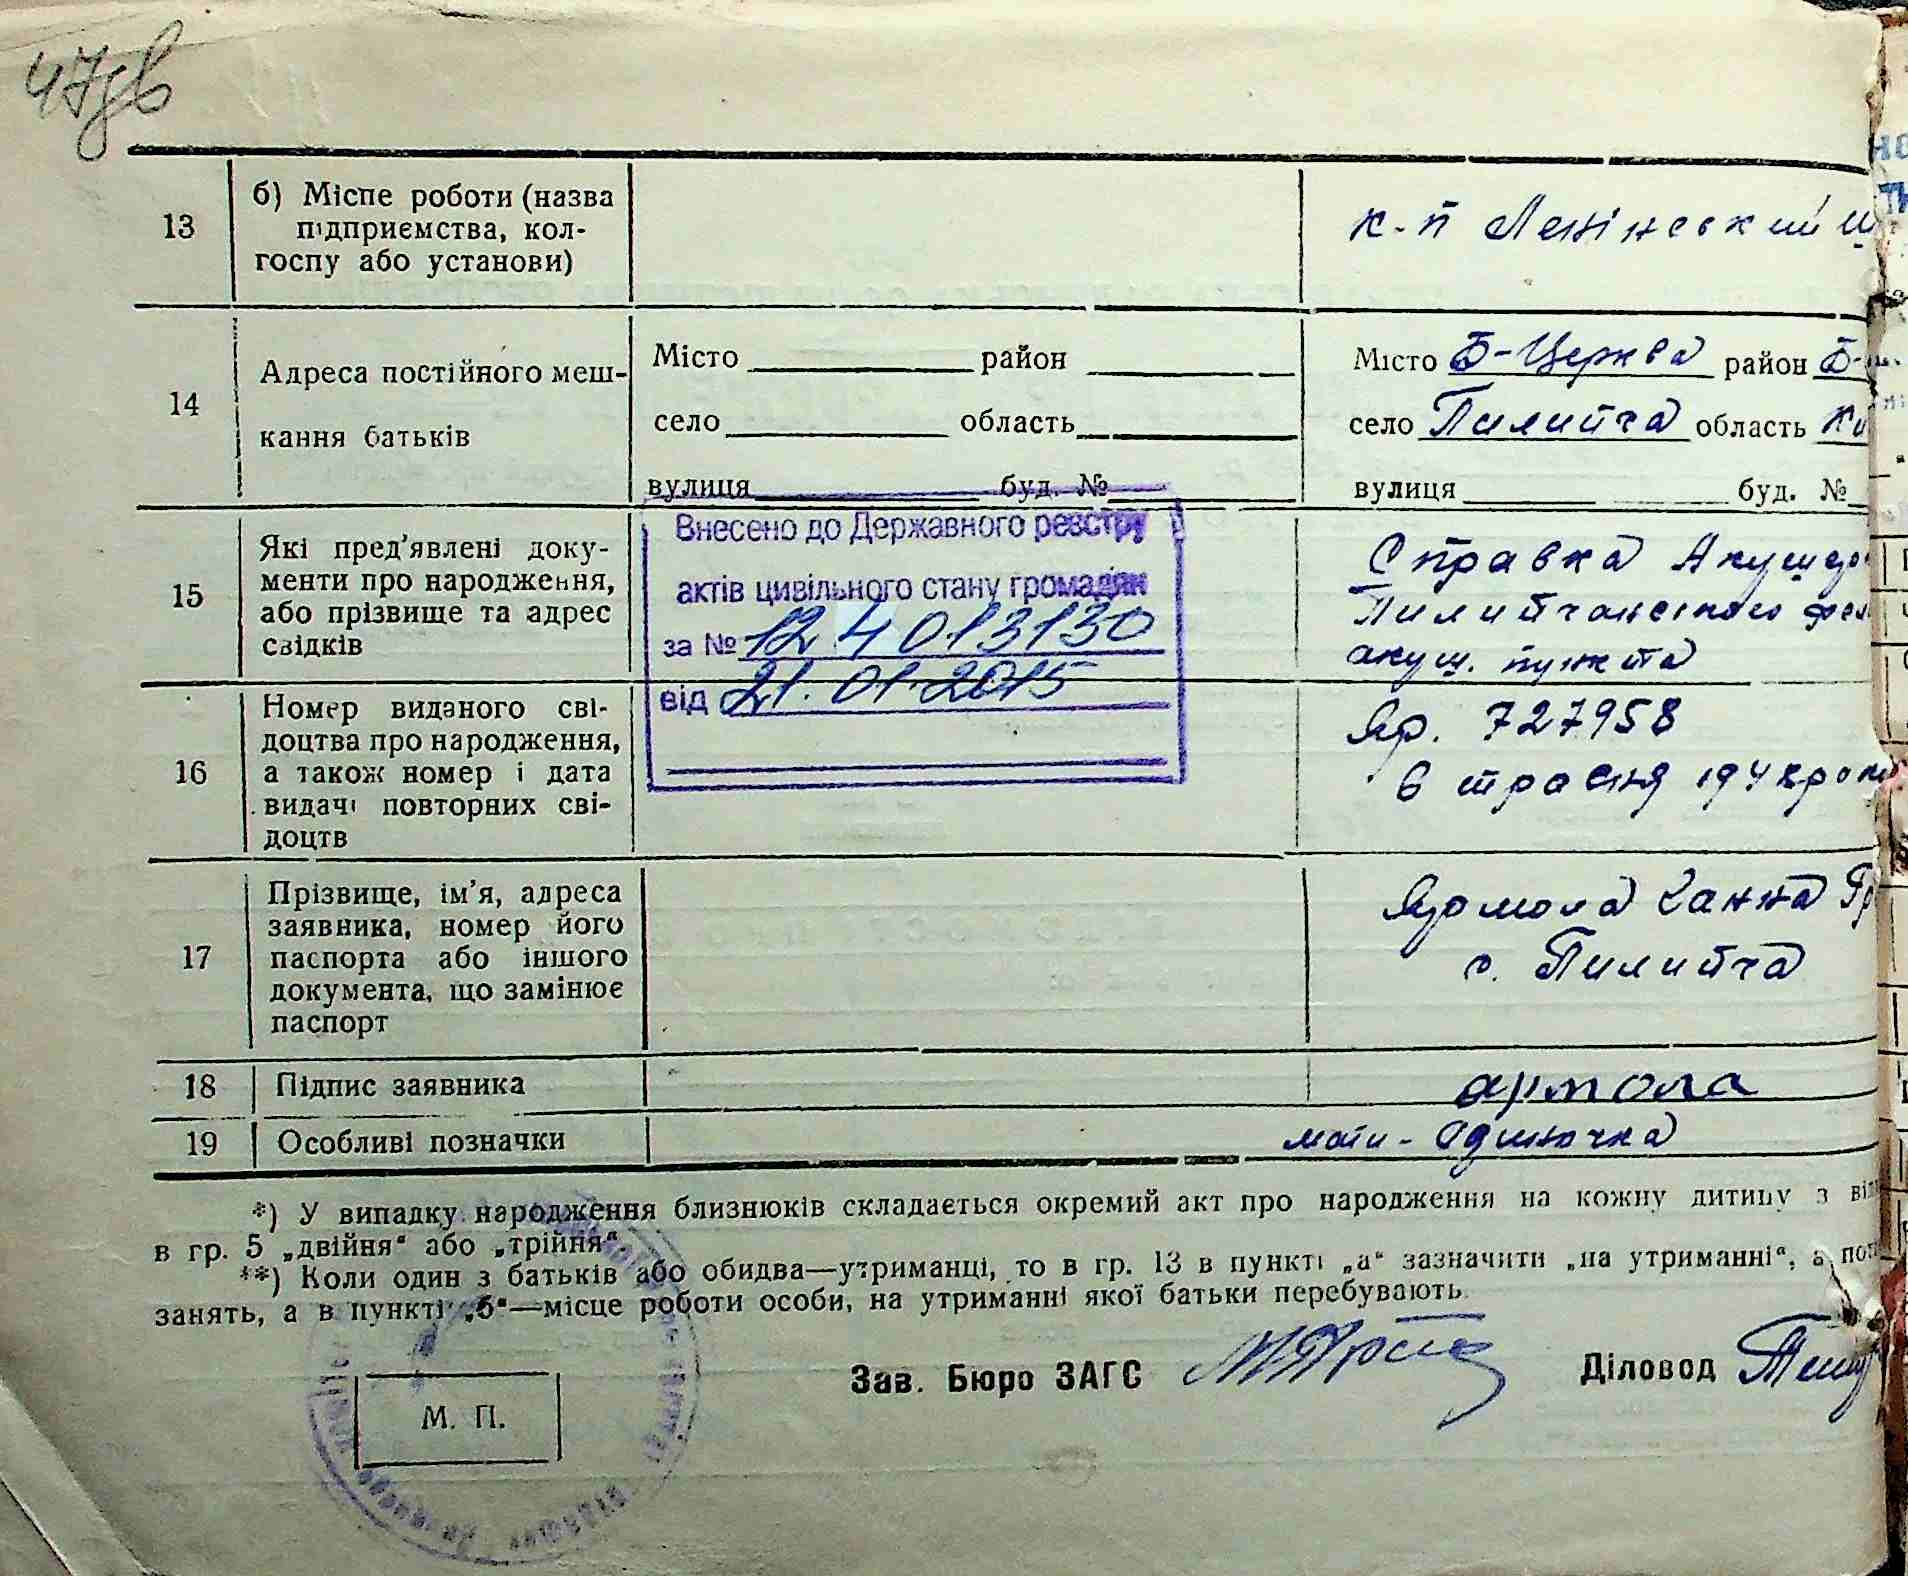 47зв
13
б) Місце роботи (назва
підприємства, кол-
госпу або установи)
к-п Ленінський
14
Адреса постійного меш-
кання батьків
Місто район
село область
вулиця буд. №
Місто Б-Церква район Б-
село Пилипча область Ки
вулиця буд. №
15
Які пред'явлені доку-
менти про народження,
або прізвище та адрес
свідків
Внесено до Державного реєстру
актів цивільного стану громадян
за № 124013130
від 21.01.2015
Справка Акушера
Пилипчанського фел
акуш. пункта
16
Номер виданого сві-
доцтва про народження,
а також номер і дата
видачі повторних сві-
доцтв
Яр. 727958
6 травня 194 року
17
Прізвище, ім'я, адреса
заявника, номер його
паспорта або іншого
документа, що замінює
паспорт
Ярмола Ганна Гр
с. Пилипча
18
Підпис заявника
армола
19
Особливі позначки
мати-одиночка
*) У випадку народження близнюків складається окремий акт про народження на кожну дитину з від
в гр. 5 „двійня“ або „трійня“
**) Коли один з батьків або обидва—утриманці, то в гр. 13 в пункті „а“ зазначити „на утриманні“, а поті
занять, а в пункті „б“—місце роботи особи, на утриманні якої батьки перебувають.
Зав. Бюро ЗАГС
Діловод
М. П.